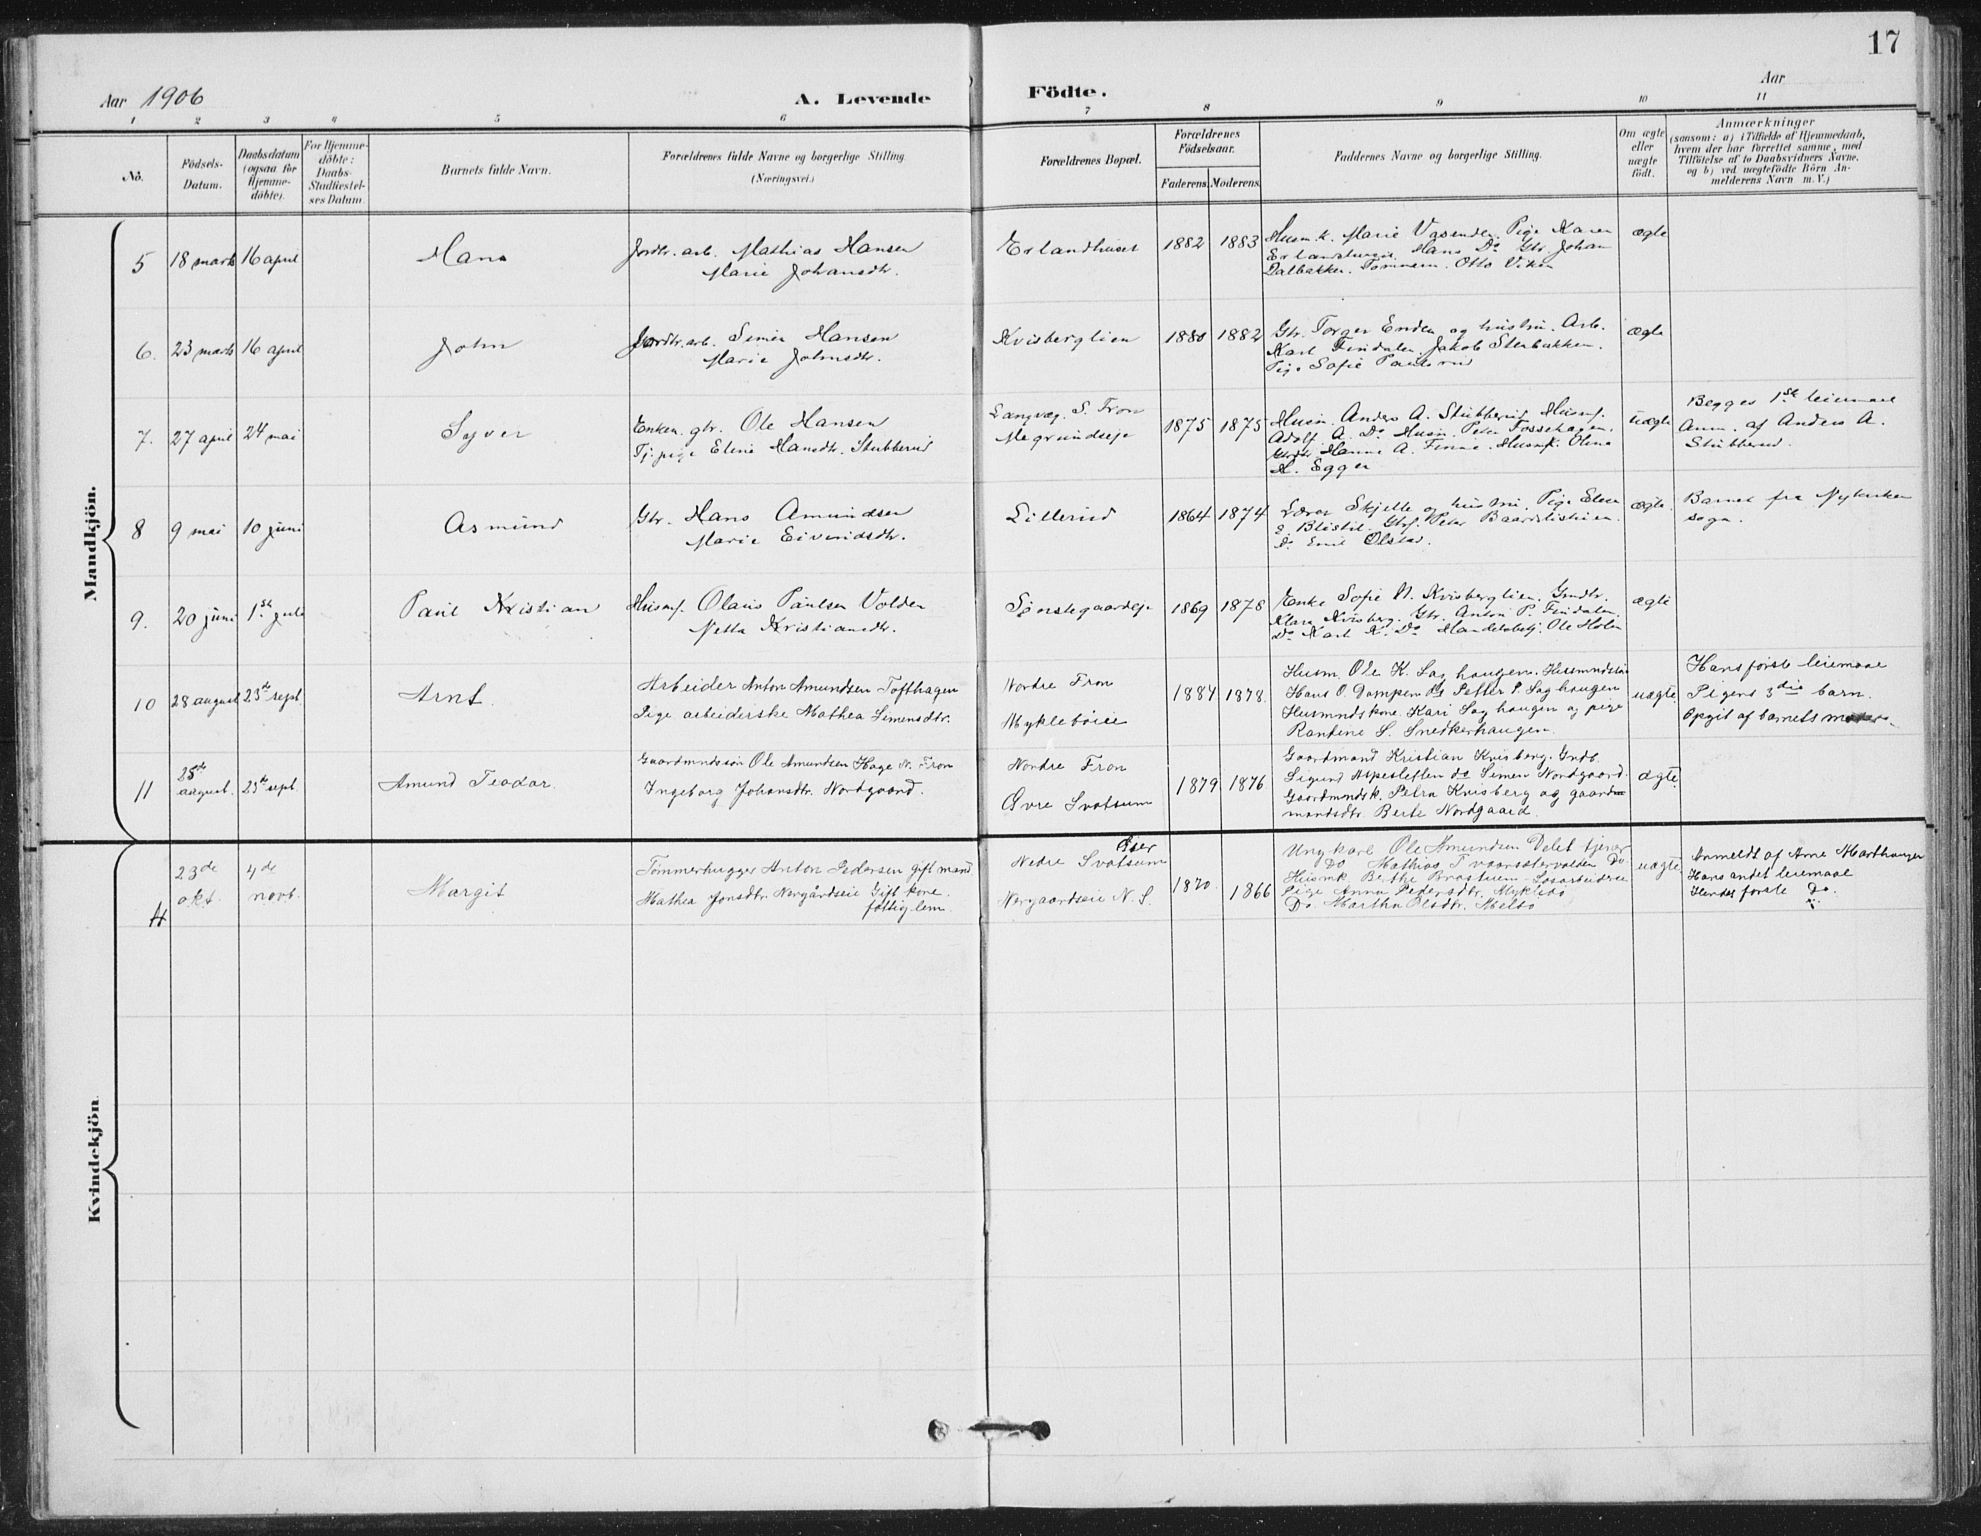 17
Aar 1906
A. Levende Födte.
Aar
1 2 3 4 5 6 7 8 9 10 11
No.
Födsels-Datum.
Daabsdatum (ogsaa for Hjemme-döbte).
For Hjemme-döbte: Daabs-Stadfæstel-ses Datum
Barnets fulde Navn.
Forældrenes fulde Navne og borgerlige Stilling. (Næringsvei.)
Forældrenes Bopæl.
Forældrenes Födselsaar.
Faderens. Moderens.
Faddernes Navne og borgerlige Stilling.
Om ægte eller uægte födt.
Anmærkninger
(saasom: a) i Tilfælde af Hjemmedaab,
hvem der har forrettet samme, med
Tilföielse af to Daabsvidners Navne,
og b) ved uægtefödte Börn An-
melderens Navn m.V.)
Mandkjön.
5 18 marts 16 april Hans
Jordbr. arb. Mathias Hansen
Marie Johansdtr.
Erlandhuset 1882 1883
Husm.k. Marie Vasenden, Pige Karen
Erlandhuset, Hans Do Gbr. Johan
Dalbakken. Tømmerm. Otto Viken
ægte
6. 23 marts 16 april John
Jordbr. arb. Simen Hansen
Marie Johnsdtr.
Kvisberglien 1880 1882
Gbr. Torger Enden og hustru. Arb.
Karl Findalen, Jakob Stubakken.
Pige Sofie Paulsrud
ægte
7. 27 april 24 mai Syver
Enkem. gbr. Ole Hansen
Tj. pige Eline Hansdtr. Stubberud
Langvæg. S. Fron
Megrundseje
1875 1875
Husm. Anders A. Stubberud, Husmf.
Adolf A. Do Husm. Peter Fossehagen.
Gbrdtr. Hanne A. Finne. Husmk. Olina
H. Egger
uægte
Begges 1ste leiemaal
Anm. af Anders A.
Stubberud.
8 9 mai 10 juni Asmund
Gbr. Hans Amundsen
Marie Eivindsdtr.
Lillerud 1864 1874
Lærer Skjelle og hustru, Pige Elise
E. Blistil. Gbrf. Peter Baardslistuen.
Do Emil Olstad.
ægte.
Barnet fra Nykirken
sogn.
9. 20 juni 1ste juli Paul Kristian
Husmf. Olaus Paulsen Volden
Netta Kristiansdtr.
Sønstegaardseje 1869 1878
Enke Sofie N. Kvisberglien. Gmdtr.
Klara Kvisberg. Gbr. Anton P. Findalen
Do Karl K. Do Handelsbetj. Ole Holen
ægte
10 28 august 23de sept. Arnt.
Arbeider Anton Amundsen Tofthagen
Pige arbeiderske Mathea Simensdtr.
Nordre Fron
Myklebøie
1884 1878.
Husm. Ole K. Saghaugen. Husmndssøn
Hans O. Dampen Do Petter P. Saghaugen
Husmndskone Kari Saghaugen og pige
Rantine S. Snedkerhaugen.
uægte.
Hans første leiemaal
Pigens 3die barn.
Opgit af barnets moder.
11 25de august. 23de sept. Amund Teodor.
Gaardmndssøn Ole Amundsen Hage N. Fron
Ingeborg Johansdtr. Nordgaard.
Nordre Fron
Øvre Svatsum
1879 1876
Gaardmand Kristian Kvisberg. Gmdb.
Sigurd Aspesletten do Simen Nordgaard.
Gaardmndsk. Petra Kvisberg og gaard-
mandsdtr. Berte Nordgaard.
ægte.
Kvindekjön
4 23de okt. 4de novb. Margit
Tømmerhugger Anton Pedersen gift mand
Mathea Jonsdtr. Nergårdseie Gift kone.
fattiglem.
Nedre Svatsum
Nergaardseie N. S.
1870. 1866
Ungkarl Ole Amundsen Dalet tjener
Do Mathias T vaarsætervolden Do
Husmk Berthe Brostuen Løsarbeiderske
Pige Anna Pedersdtr. Myklebø
Do. Martha Olsdtr. Melbø
uægte
Anmeldt af Arne Marthauger
Hans andet leiemaal
Hendes første Do.